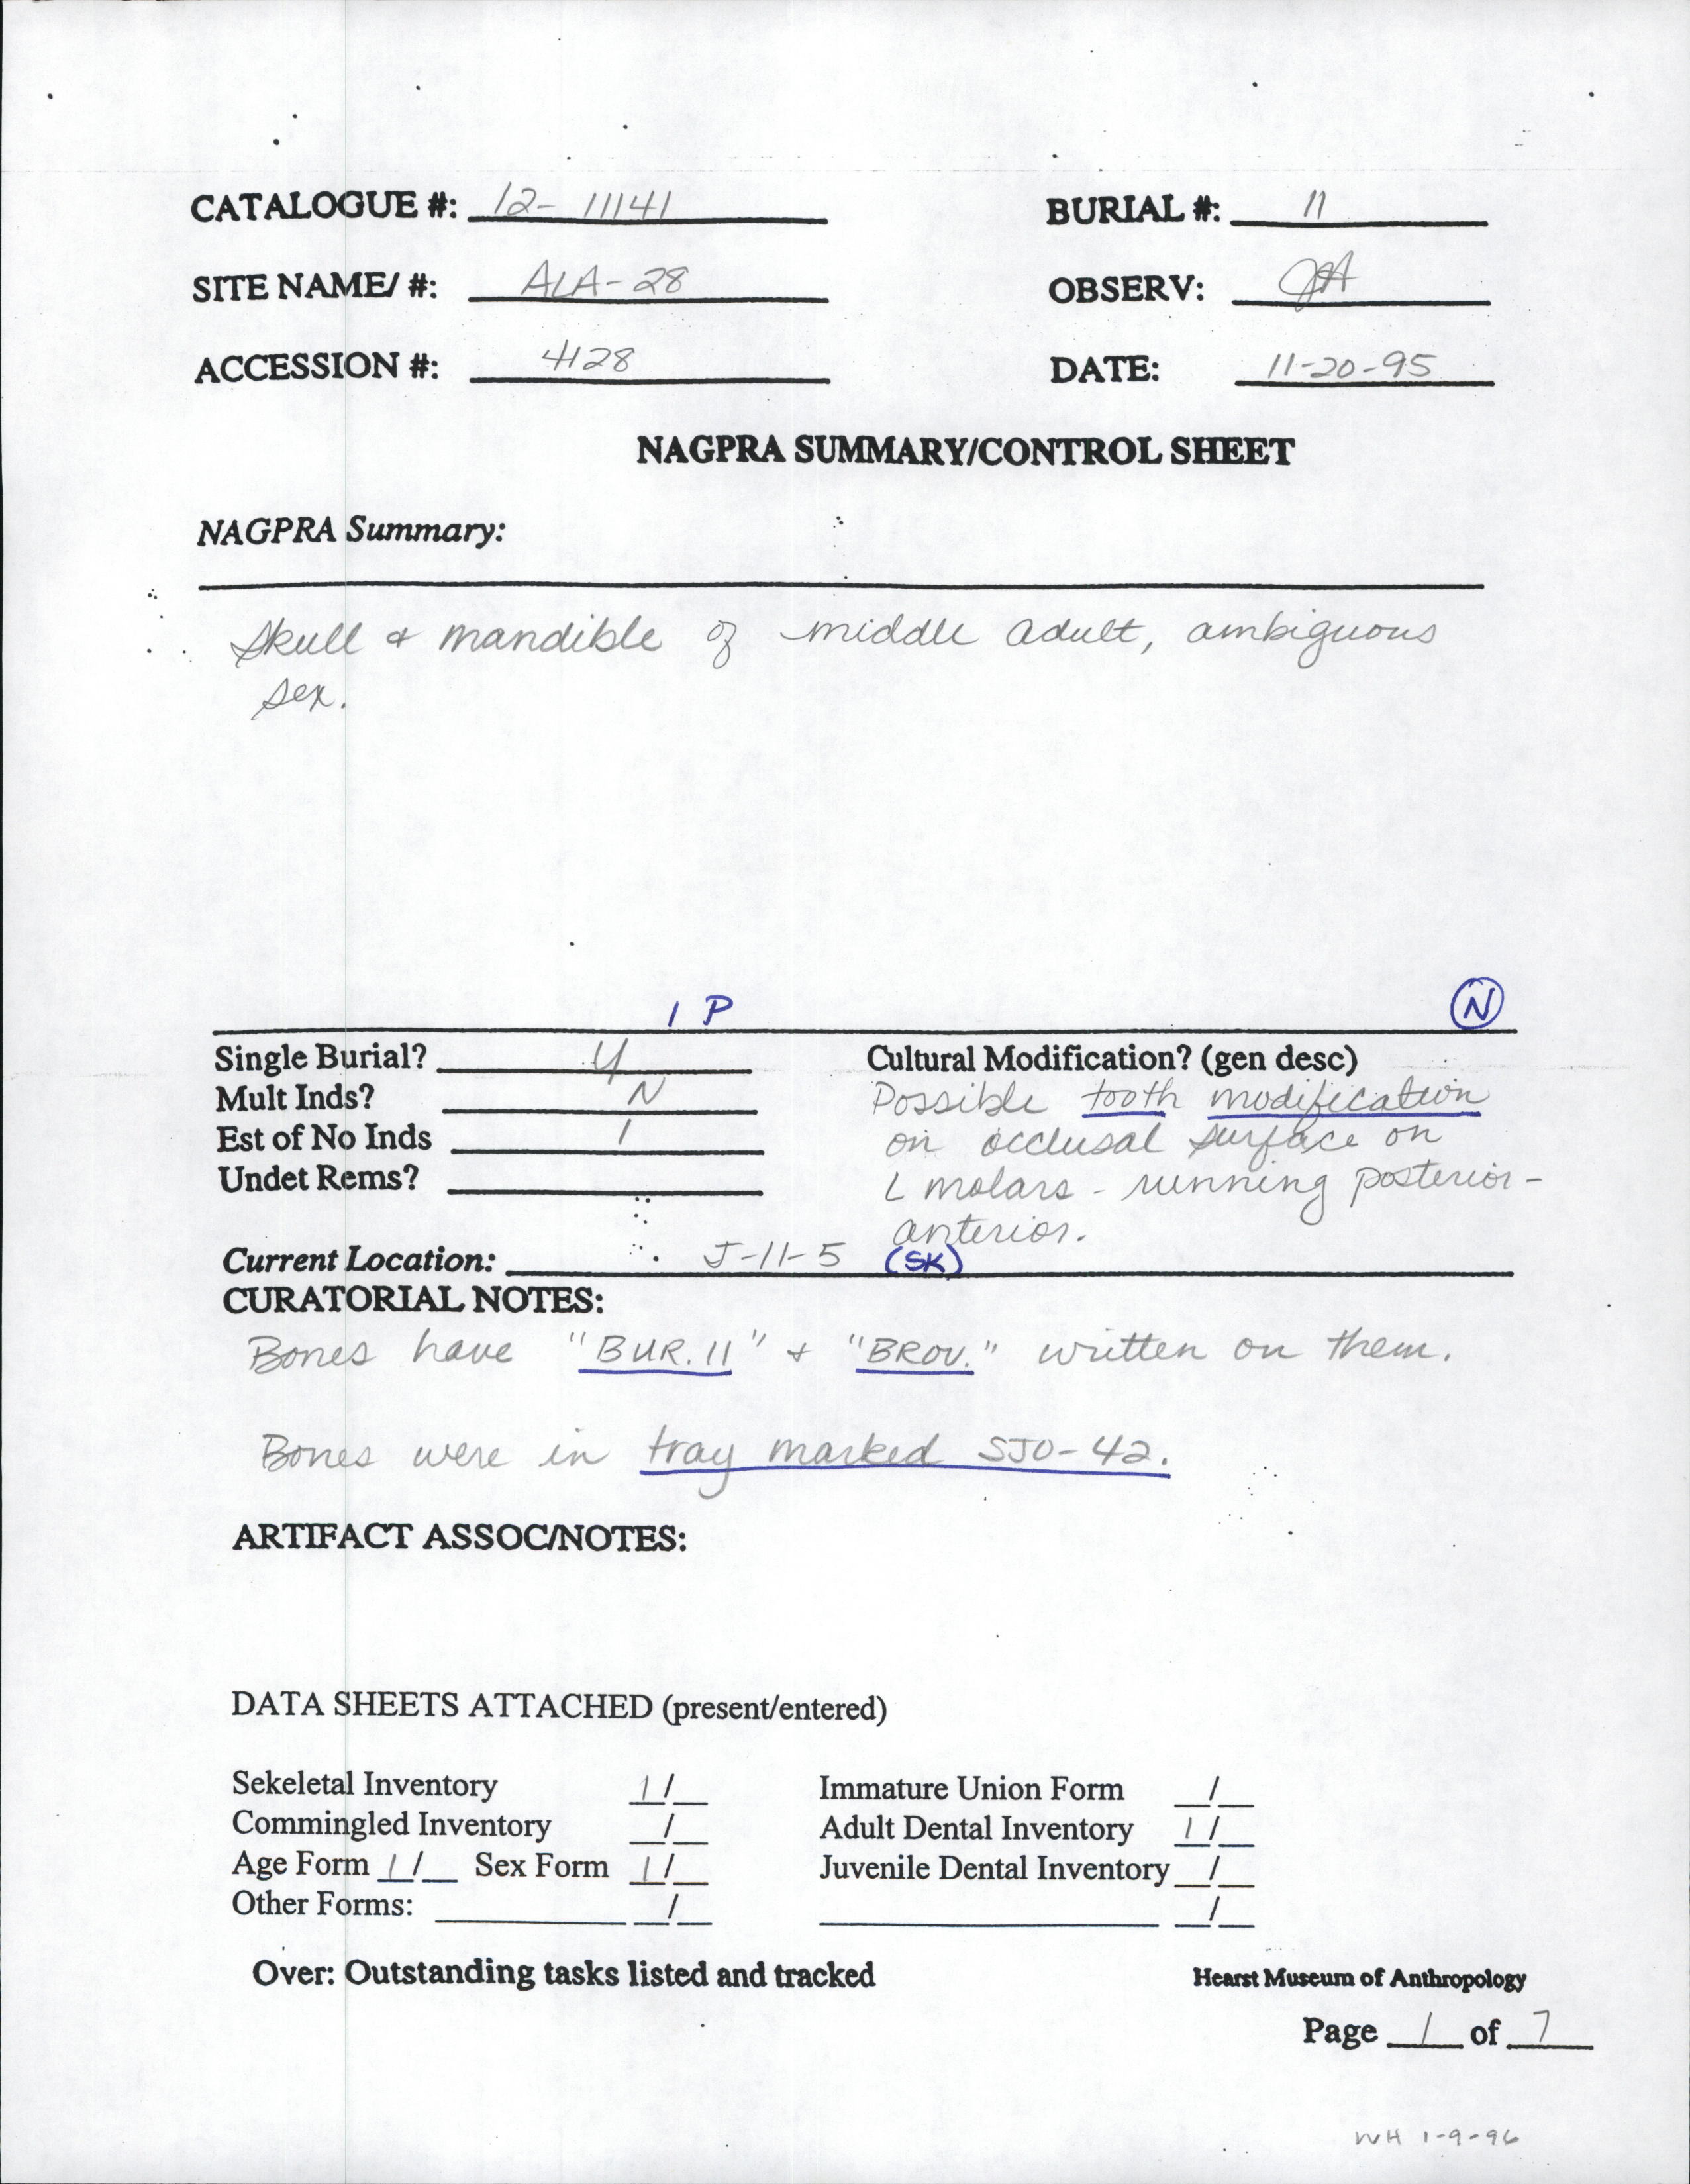 CATALOGUE #: 12- 11141 BURIAL #: 11
SITE NAME/ #: ALA-28 OBSERV:
ACCESSION #: 4128 DATE: 11-20-95
NAGPRA SUMMARY/CONTROL SHEET
NAGPRA Summary:
Skull & mandible of middle adult, ambiguous
sex.
1 P N
Single Burial? Y Cultural Modification? (gen desc)
Mult Inds? N Possible tooth modification
Est of No Inds 1 on occlusal surface on
Undet Rems? L molars - running posterior-
anterior.
Current Location: J-11-5 (SK)
CURATORIAL NOTES:
Bones have "BUR. 11" & "BROV." written on them.
Bones were in tray marked SJO-42.
ARTIFACT ASSOC/NOTES:
DATA SHEETS ATTACHED (present/entered)
Sekeletal Inventory 1/__ Immature Union Form __/__
Commingled Inventory __/__ Adult Dental Inventory 1/__
Age Form 1/__ Sex Form 1/__ Juvenile Dental Inventory __/__
Other Forms: ______ __/__ ______ __/__
Over: Outstanding tasks listed and tracked Hearst Museum of Anthropology
Page 1 of 7
WH 1-9-96